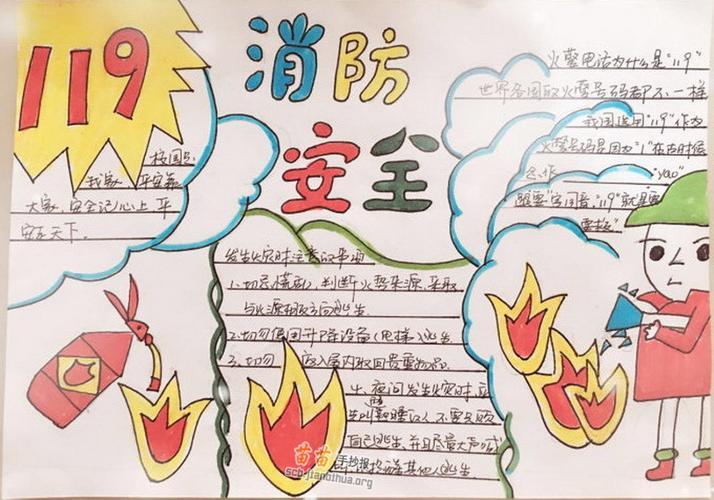 119
消防
安全
校园是
我家 平安靠
大家,安全记心上 平
安走天下.
火警电话为什么是"119"
世界各国取火警号码都不一样
我国选用"119"作为
火警号码是因为"1"在古时候
念作 "yao"
跟"要"字同音."119"就是要
要救"
发生火灾时注意的事项
1.切忌慌乱,判断火势来源,采取
与火源相反方向逃生
2.切勿使用升降设备(电梯)逃生
3.切勿 返入屋内取回贵重物品.
4.夜间发生火灾时,应
先叫醒熟睡的人,不要只顾
自己逃生,并且尽量大声喊
其他人逃生
苗苗
手抄报
scb.jianbihua.org